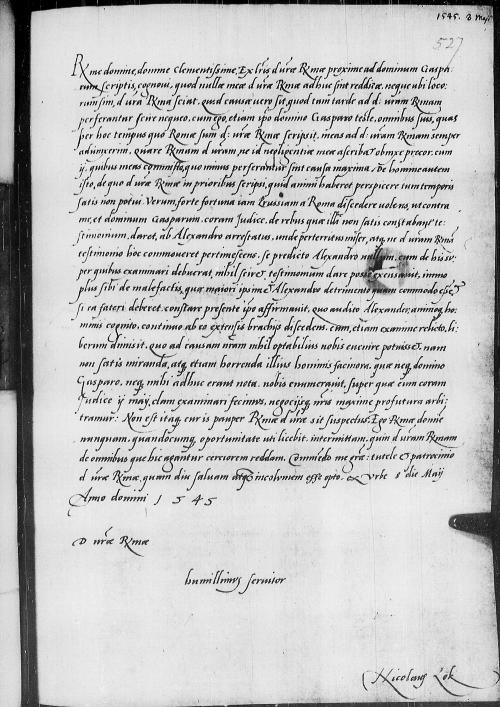 1545. 8 Maÿ
527
Rme domine, domine clementissime, Ex lris d vrae Rmae proxime ad dominum Gaspa:
rum scriptis, cognovi, quod nullae meae d vrae Rmae adhuc sint redditae, neque ubi loco:
rum sint, d vra Rma sciat, quid causae vero sit, quod tam tarde ad d: vram Rmam
perferantur scire nequeo, cum ego, etiam ipso domino Gasparo teste, omnibus suis, quas
per hoc tempus quo Romae sum d: vrae Rmae scripsit, meas ad d: vram Rmam semper
adiunxerim, quare Rmam d vram ne id negligentiae meae ascribat obnixe precor, cum
ij, quibus meas commisso, quo minus perferantur sint causa maxima. De homine autem
isto, de quo d vrae Rmae in prioribus scripsi, quid animi haberet perspicere tum temporis
satis non potui. Verum, forte fortuna iam Prussiam a Roma discedere volens, ut contra
me, et dominum Gasparum, coram Judice, de rebus quae illi non satis constabant te:
stimonium daret, ab Alexandro arrestatus, unde perterritus miser, atque ne d vram Rmam
testimonio hoc commoveret pertimescens, se predicto Alexandro nullum, cum de his su:
per quibus examinari debuerat, nihil sciret, testimonium dare posse excusavit, immo
plus sibi de malefactis, quae maiori ipsimet Alexandro detrimento quam commodo essent
si ea fateri deberet, constare presente ipso affirmavit, quo audito Alexander, animoque ho:
minis cognito, continuo ab eo extensis brachijs discedens, eum, etiam examine relicto, li:
berum dimisit, quo ad causam nram nihil optabilius nobis evenire potuisset, nam
non satis miranda, atque etiam horrenda illius hominis facinora, quae neque domino
Gasparo, neque mihi adhuc erant nota, nobis enumeravit, super quae eum coram
Judice ij maij, clam examinari fecimus, negocijsque nris maxime profutura arbi:
tramur: Non est itaque cur is pauper Rmae d vrae sit suspectus, Ego Rme domine
nunquam, quandocunque oportunitate uti licebit, intermittam, quin d vram Rmam
de omnibus quae hic agantur cerciorem reddam, Commendo me gratiae: tutelae et patrocinio
d vrae Rmae, quam diu salvam atque incolumem esse opto. ex Vrbe 8 die Maij
Anno domini 1545
D vrae Rmae
humillimus servitor
Nicolaus Lok